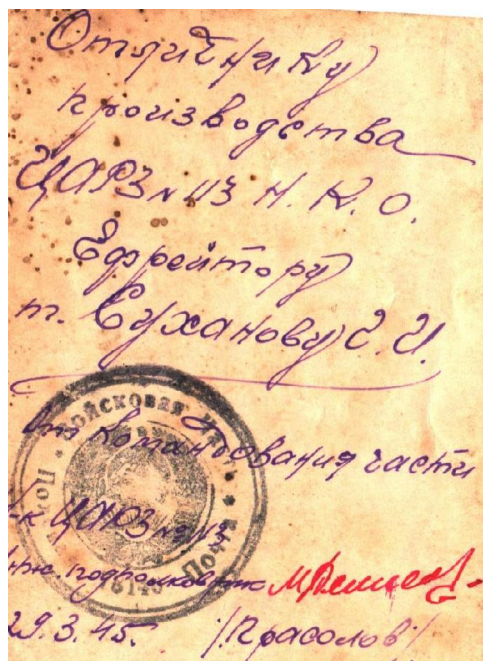 Отличнику
производства
ЦАРЗ № 113 Н. К. О.
Ефрейтору
т. Суханову
От Командования части
н-к ЦАРЗ № 113
инж. подполковник
29.3.45. /Прасолов/
Войсковая часть
Полевая Почта